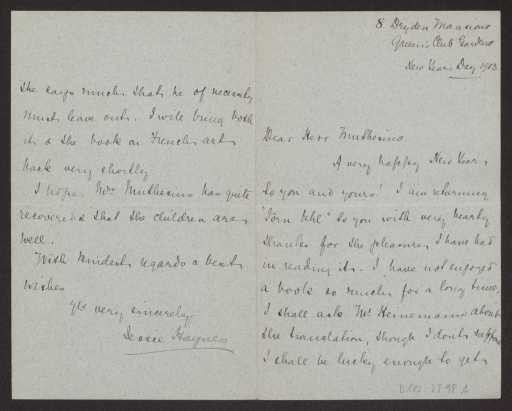 8 Dryden Mansions
Queen's Club Gardens
New Years Day 1903
Dear Herr Muthesius
A very happy New Year
to you and yours! I am returning
"Jörn Uhl" to you with very hearty
thanks for the pleasure I have had
in reading it. I have not enjoyed
a book so much for a long time.
I shall ask Mr Heinemann about
the translation, though I don't suppose
I shall be lucky enough to get
she says much that he of necessity
must leave out. I will bring both
it & the book on French art
back very shortly
I hope Mrs Muthesius has quite
recovered & that the children are
well.
With kindest regards & best
wishes
Yrs very sincerely,
Jessie Haynes